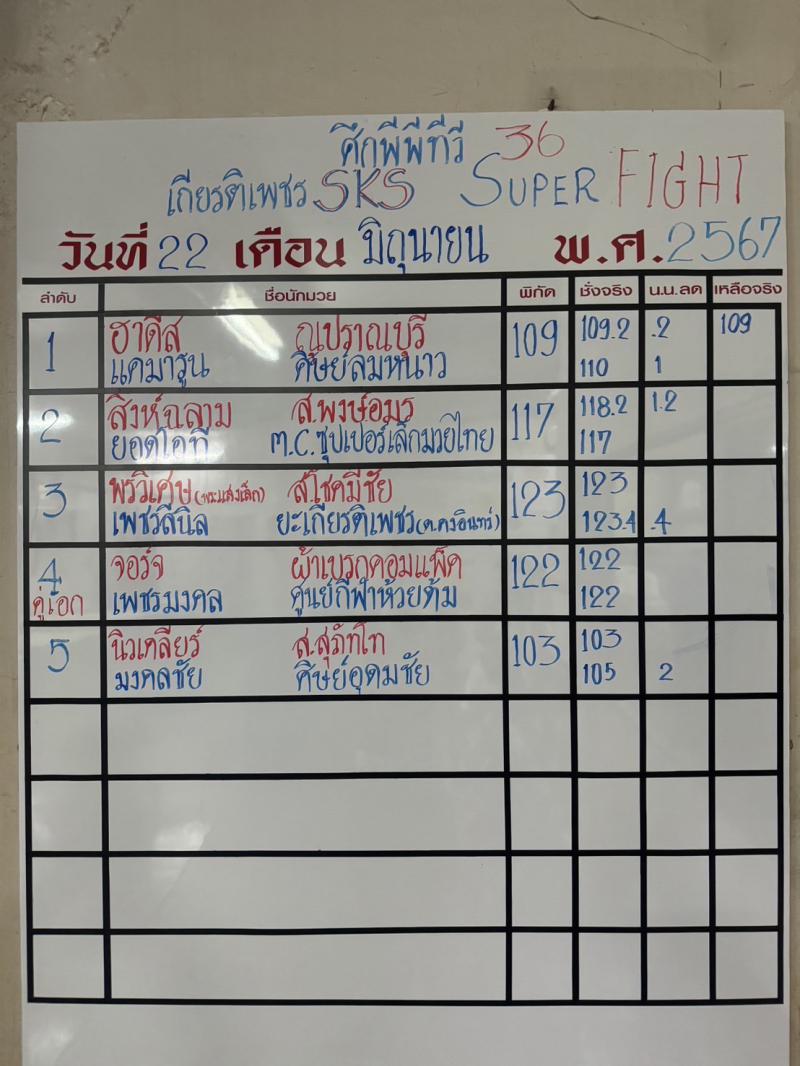 ศึกพีพีทีวี 36
เกียรติเพชร SKS SUPER FIGHT
วันที่ 22 เดือน มิถุนายน พ.ศ. 2567
ลำดับ ชื่อนักมวย พิกัด ชั่งจริง น.น.ลด เหลือจริง
1 ฮาดีส ณปราณบุรี 109 109.2 .2 109
แคมารูน ศิษย์ลมหนาว 110 1
2 สิงห์ฉลาม ส.พงษ์อมร 117 118.2 1.2
ยอดไอที ต.C.ซุปเปอร์เล็กมวยไทย 117
3 พรวิเศษ (พระแสงเล็ก) ส.โชคมีชัย 123 123
เพชรสีนิล ยะเกียรติเพชร (ต.คงอินทร์) 123.4 .4
4 จอร์จ ผ้าเบรกคอมแพ็ค 122 122
คู่เอก เพชรมงคล ศูนย์กีฬาห้วยต้ม 122
5 นิวเคลียร์ ส.สุภัทโท 103 103
มงคลชัย ศิษย์อุดมชัย 105 2